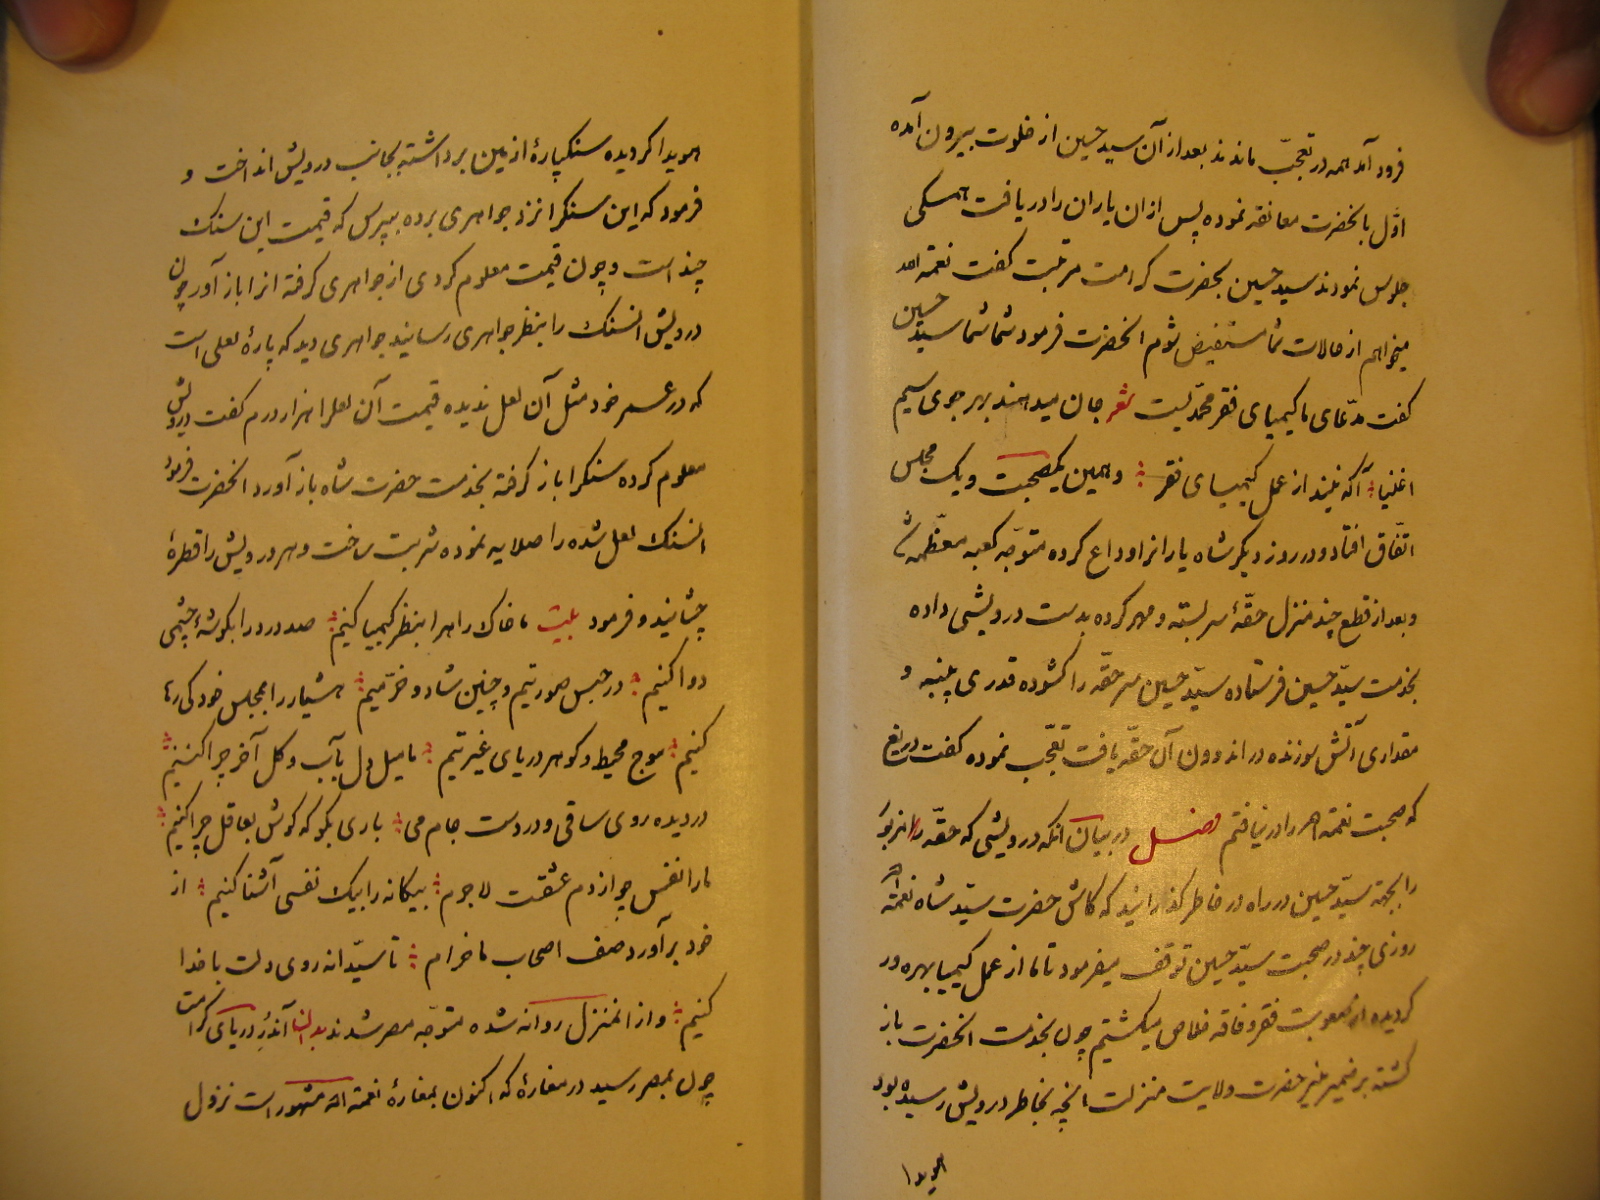 فرود آمد همه در تعجّب ماندند بعد از آن سید حسین از خلوت بیرون آمده
اوّل با لحضرت معانقه نموده پس از ان یاران را دریافت همکی
جلوس نمودند سید حسین بحضرت کرامت مرتبت کفت نعمة الله
میخواهم از حالات شما مستفیض شوم انحضرت فرمود شما شما سید حسین
کفت مدّعای ما کیمیای فقر محمّدیست شعر جان میدهند بهر جوی سیم
اغنیا آکه نیند از عمل کیمیای فقر و همین یکصحبت و یک مجلس
اتّفاق افتاد و در روز دیکر شاه یارانرا وداع کرده متوجّه کعبه معظّمه شد
و بعد از قطع چند منزل حقّهٔ سربسته و مهر کرده بدست درویشی داده
بخدمت سیّد حسین فرستاده سیّد حسین سر حقّه را کشوده قدری پنبه و
مقداری آتش سوزنده در اندرون آن حقّه یافت تعجّب نموده کفت دریغ
که صحبت نعمة الله را در نیافتم فصل در بیان انکه درویشی که حقّه
را بجهة سیّد حسین در راه در خاطر کذرانید که کاش حضرت سیّد شاه نعمة الله
روزی چند در صحبت سیّد حسین توقف میفرمود تا ما از عمل کیمیا بهره ور
کردیده از صعوبت فقر و فاقه خلاص میکشتیم چون بخدمت انحضرت باز
کشته بر ضمیر منیر حضرت ولایت منزلت انچه بخاطر درویش رسیده بود
هویدا
هویدا کردیده سنکپارهٔ از زمین برداشته بجانب درویش انداخت و
فرمود که این سنکرا نزد جواهری برده بپرس که قیمت این سنک
چند است و چون قیمت معلوم کردی از جواهری کرفته انرا باز آور چون
درویش انسنک را بنظر جواهری رسانید جواهری دید که پارهٔ لعلی است
که در عمر خود مثل آن لعل ندیده قیمت آن لعلرا هزار درم کفت درویش
معلوم کرده سنکرا باز کرفته بخدمت حضرت شاه باز آورد انحضرت فرمود
انسنک لعل شده را صلایه نموده شربت ساخت و هر درویش را قطرهٔ
چشانید و فرمود بیت ما خاک راه را بنظر کیمیا کنیم صد درد را بکوشهٔ چشمی
دوا کنیم در حبس صورتیم و چنین شاد و خرّمیم هشیار را بمجلس خود کی رها
کنیم موج محیط و کوهر دریای غیرتیم ما میل دل بآب و کل آخر چرا کنیم
در دیده روی ساقی و در دست جام می باری بکو که کوش بعاقل چرا کنیم
ما را نفس چو از دم عشقت لاجرم بیکانه را بیک نفسی آشنا کنیم از
خود برآ و در صف اصحاب ما خرام تا سیّدانه روی دلت با خدا
کنیم و از انمنزل روانه شده متوجّه مصر شدند بدان آن دُرِ دریای کرامت
چون بمصر رسید در مغارهٔ که اکنون بمغارهٔ نعمة الله مشهور است نزول